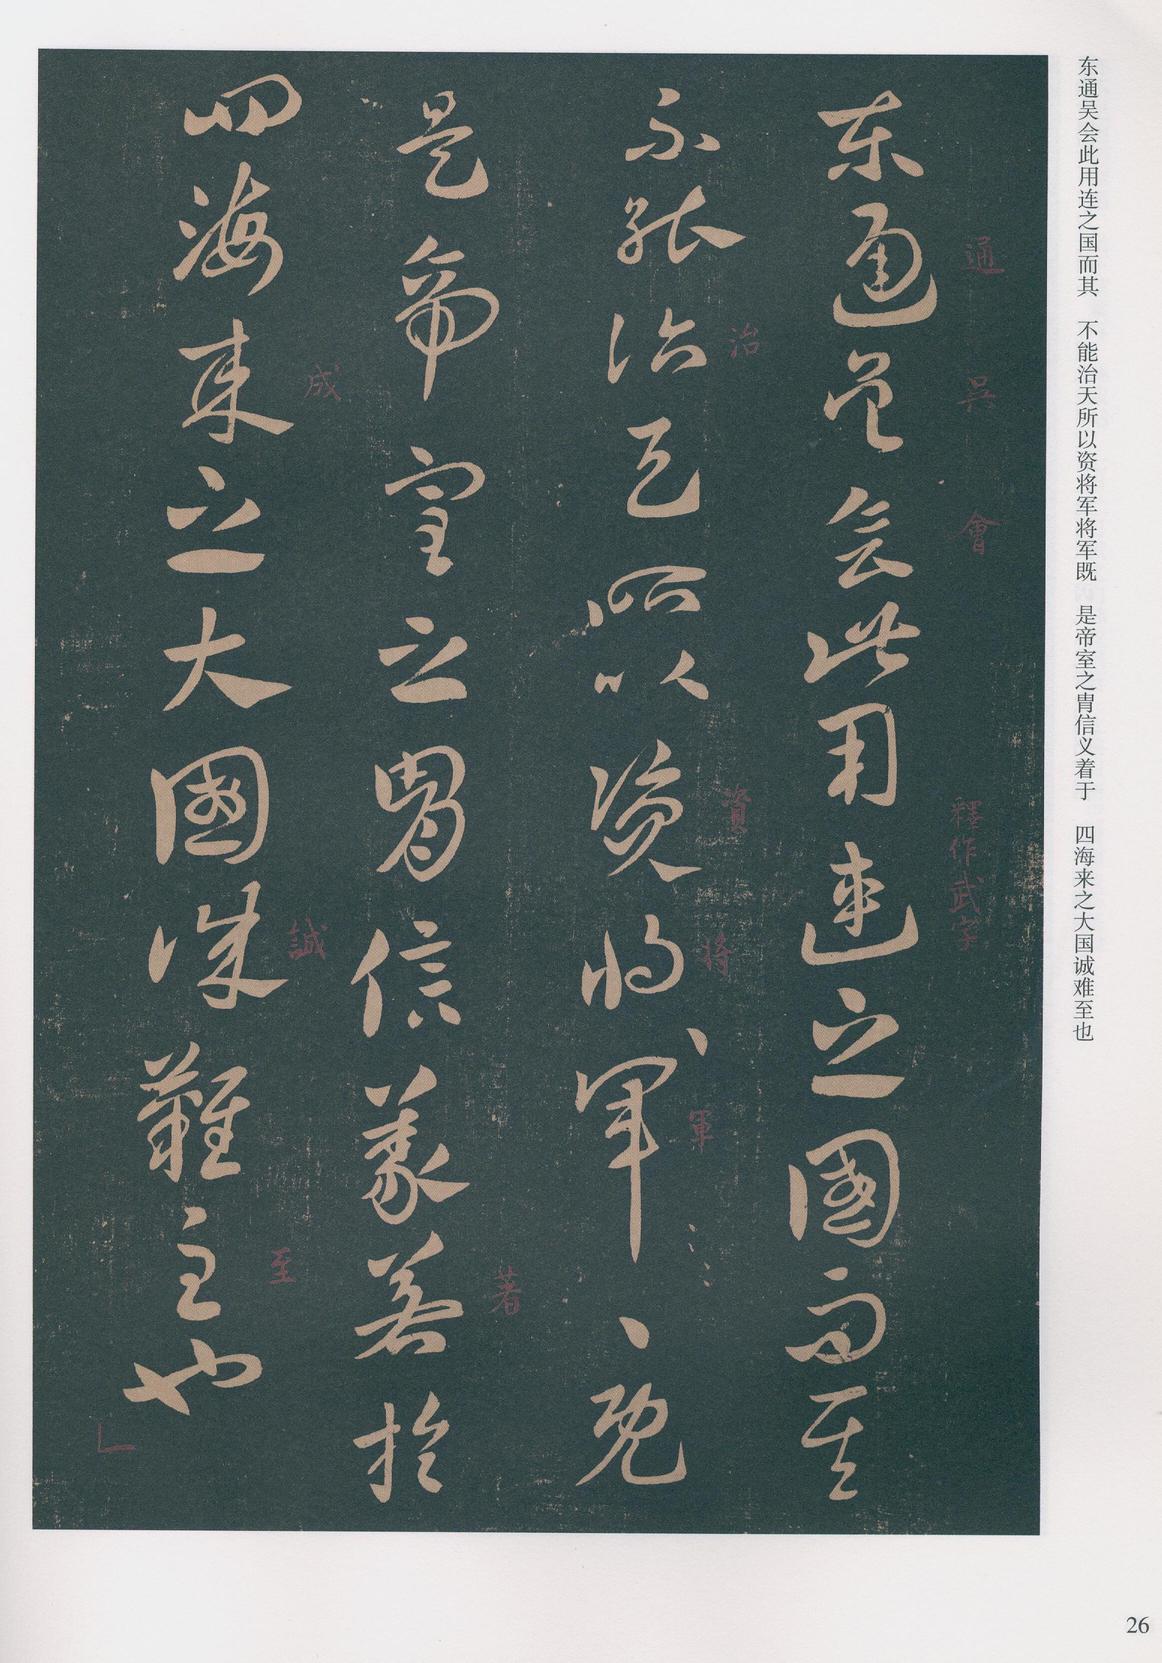 东通吴会此用连之国而其　不能治天所以资将军将军既　是帝室之胄信义着于　四海来之大国诚难至也
通
吳
會
釋作武字
東通吳會此用連之國而其
治
資
將
軍
不能治天所以資將軍既
著
是帝室之胄信義著於
成
誠
至
四海来之大國誠難至也
26